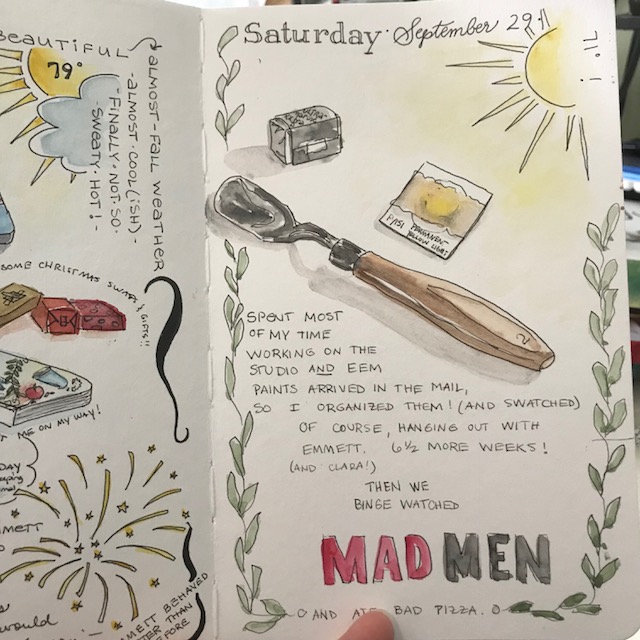 BEAUTIFUL
79°
ALMOST-FALL WEATHER
-ALMOST COOL(ISH)-
-FINALLY NOT SO-
-SWEATY HOT!-
SOME CHRISTMAS SWAPS & GIFTS!!
ME ON MY WAY!
DAY
would
BEHAVED
THAN
Saturday · September 29th
71° !
PY151 PERMANENT
YELLOW LIGHT
SPENT MOST
OF MY TIME
WORKING ON THE
STUDIO AND EEM
PAINTS ARRIVED IN THE MAIL,
SO I ORGANIZED THEM! (AND SWATCHED)
OF COURSE, HANGING OUT WITH
EMMETT. 6½ MORE WEEKS!
(AND CLARA!)
THEN WE
BINGE WATCHED
MAD MEN
AND ATE BAD PIZZA.